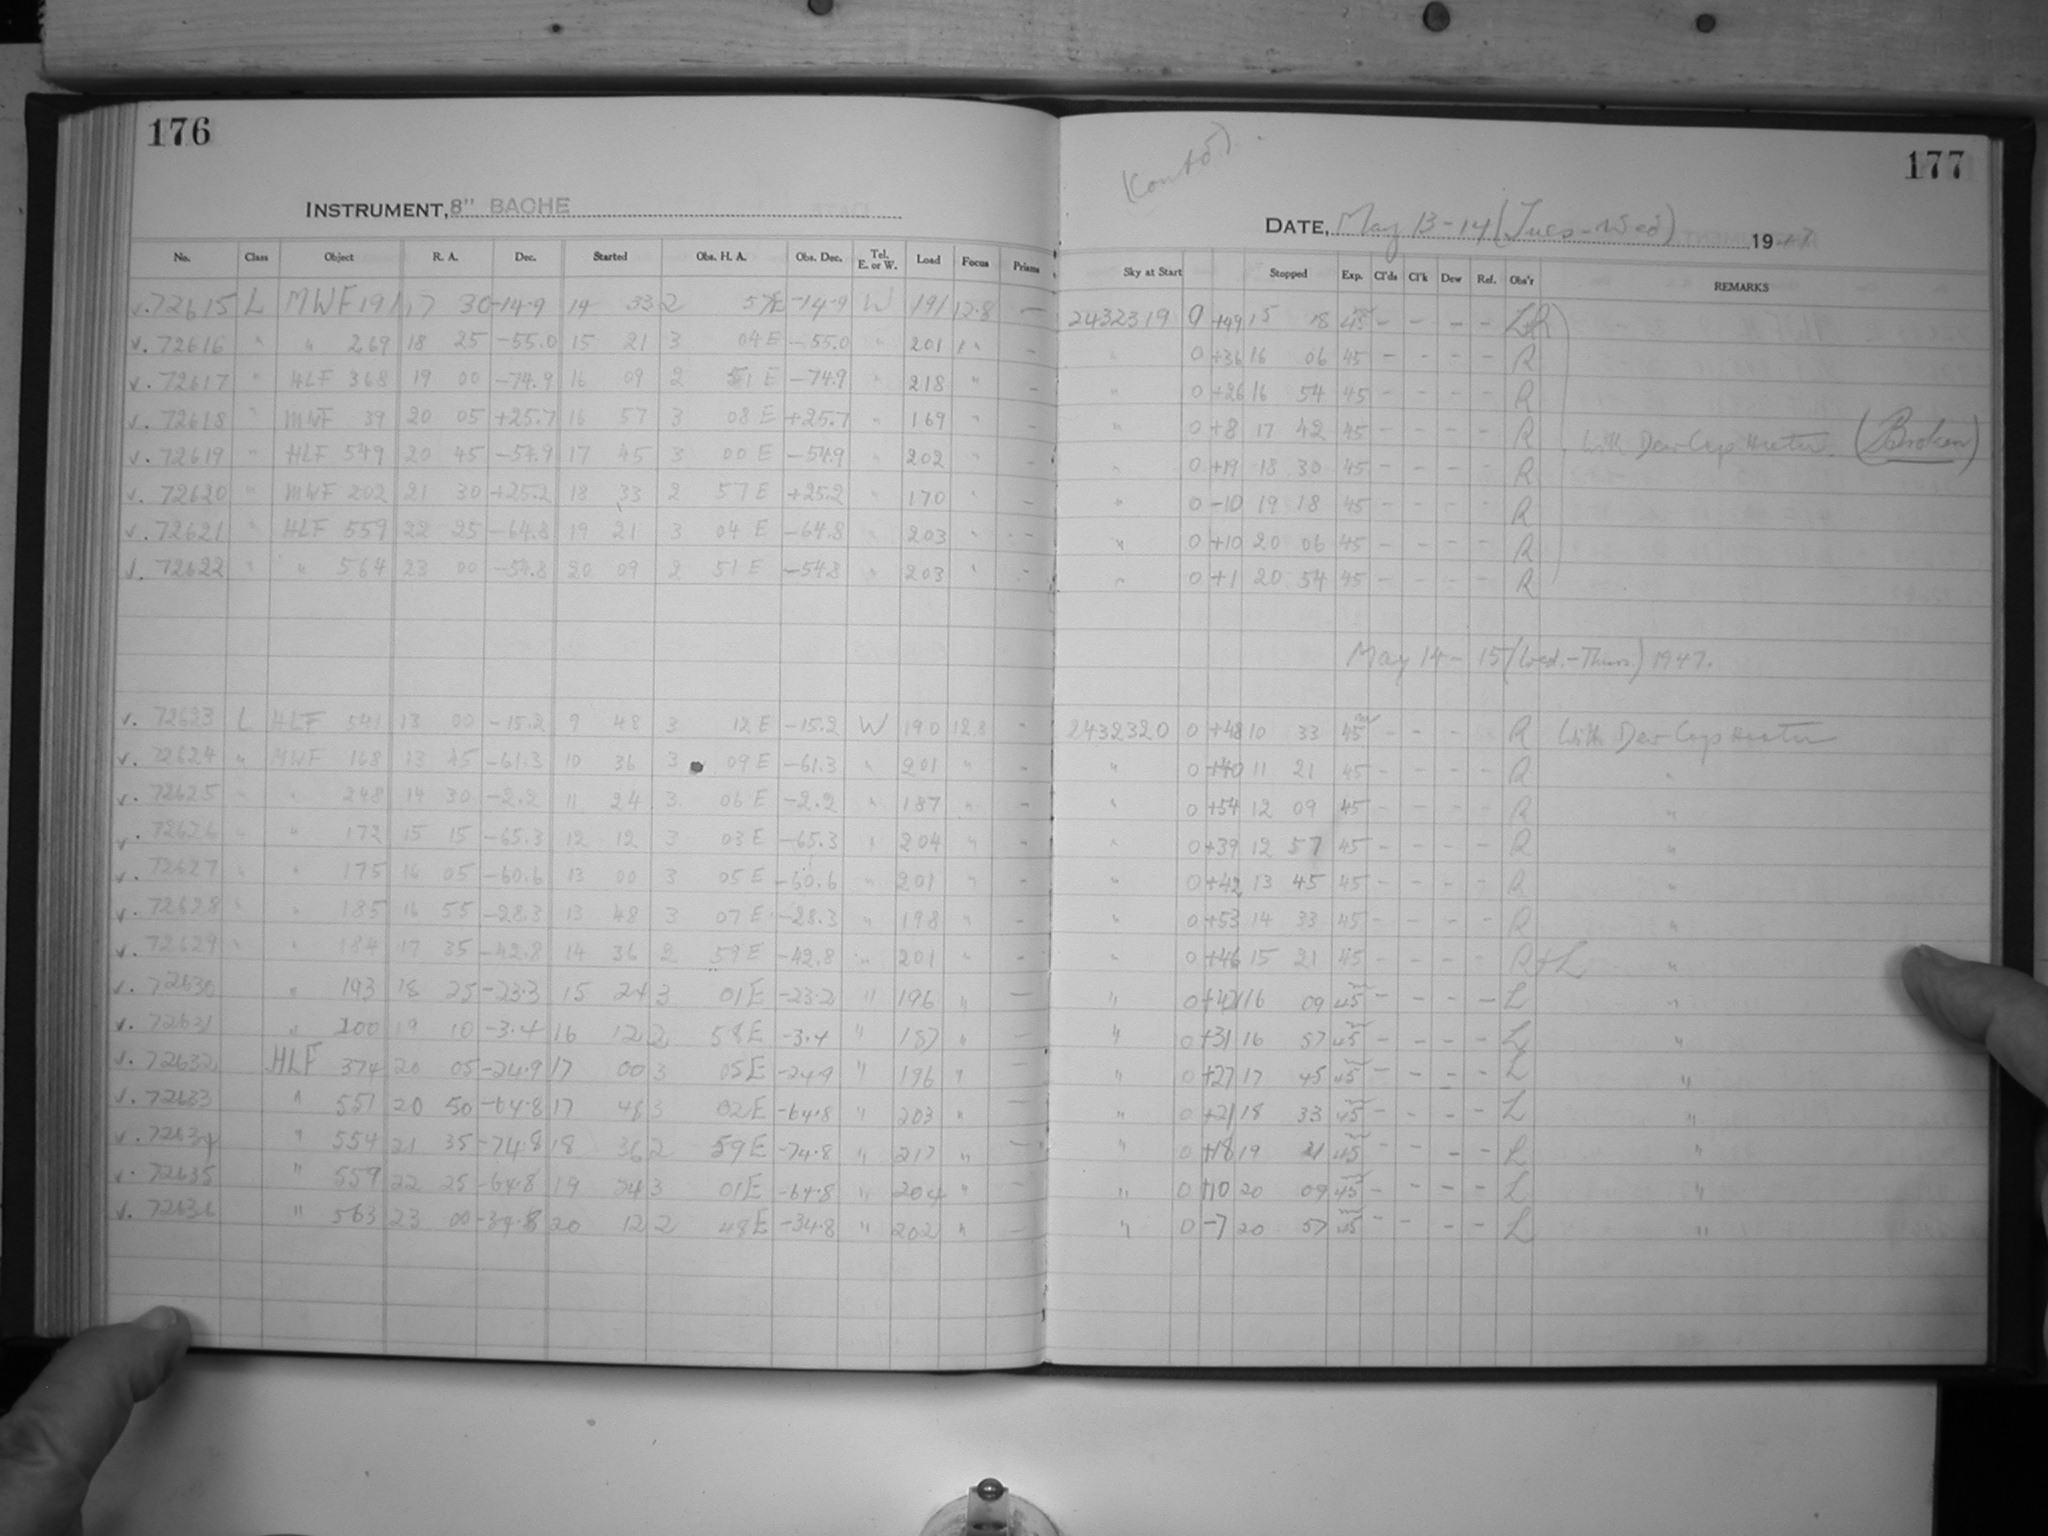 176
INSTRUMENT, 8" BACHE
No. Class Object R. A. Dec. Started Obs. H. A. Obs. Dec. Tel. E. or W. Load Focus Prisms
v. 72615 L MWF 191 17 30 -14.9 14 33 2 57E -14.9 W 191 12.8 —
v. 72616 " " 269 18 25 -55.0 15 21 3 04 E -55.0 " 201 " –
v. 72617 " HLF 368 19 00 -74.9 16 09 2 51 E -74.9 " 218 " –
v. 72618 " MWF 39 20 05 +25.7 16 57 3 08 E +25.7 " 169 " –
v. 72619 " HLF 549 20 45 -54.9 17 45 3 00 E -54.9 " 202 " –
v. 72620 " MWF 202 21 30 +25.2 18 33 2 57 E +25.2 " 170 " –
v. 72621 " HLF 559 22 25 -64.8 19 21 3 04 E -64.8 " 203 " –
v. 72622 " " 564 23 00 -54.8 20 09 2 51 E -54.8 " 203 " –
v. 72623 L HLF 541 13 00 -15.2 9 48 3 12 E -15.2 W 190 12.8 –
v. 72624 " MWF 168 13 45 -61.3 10 36 3 09 E -61.3 " 201 " –
v. 72625 " " 248 14 30 -2.2 11 24 3 06 E -2.2 " 187 " –
v. 72626 " " 172 15 15 -65.3 12 12 3 03 E -65.3 " 204 " –
v. 72627 " " 175 16 05 -60.6 13 00 3 05 E -60.6 " 201 " –
v. 72628 " " 185 16 55 -28.3 13 48 3 07 E -28.3 " 198 " –
v. 72629 " " 184 17 35 -42.8 14 36 2 59 E -42.8 " 201 " –
v. 72630 " 193 18 25 -23.3 15 24 3 01E -23.2 " 196 " —
v. 72631 " 200 19 10 -3.4 16 12 2 58E -3.4 " 187 " —
v. 72632 HLF 374 20 05 -24.9 17 00 3 05E -24.9 " 196 " —
v. 72633 " 551 20 50 -64.8 17 48 3 02E -64.8 " 203 " —
v. 72634 " 554 21 35 -74.8 18 36 2 59E -74.8 " 217 " —
v. 72635 " 559 22 25 -64.8 19 24 3 01E -64.8 " 204 " —
v. 72636 " 563 23 00 -34.8 20 12 2 48E -34.8 " 202 " —
(Contd).
177
DATE, May 13-14 (Tues-Wed) 1947
Sky at Start Stopped Exp. Cl'ds Cl'k Dew Ref. Obs'r REMARKS
2432319 0 +49 15 18 45 – – – – L+R
" 0 +36 16 06 45 – – – – R
" 0 +26 16 54 45 – – – – R
" 0 +8 17 42 45 – – – – R With Dew Cap Heater. (Broken)
" 0 +19 18 30 45 – – – – R
" 0 -10 19 18 45 – – – – R
" 0 +10 20 06 45 – – – – R
" 0 +1 20 54 45 – – – – R
May 14-15 (Wed.-Thurs.) 1947.
2432320 0 +48 10 33 45 – – – R With Dew Cap Heater
" 0 +40 11 21 45 – – – – R "
" 0 +54 12 09 45 – – – – R "
" 0 +39 12 57 45 – – – – R "
" 0 +42 13 45 45 – – – – R "
" 0 +53 14 33 45 – – – – R "
" 0 +46 15 21 45 – – – – R+L "
" 0 +42 16 09 45 – – – – L "
" 0 +31 16 57 45 – – – – L "
" 0 +27 17 45 45 – – – – L "
" 0 +21 18 33 45 – – – – L "
" 0 +18 19 21 45 – – – – L "
" 0 +10 20 09 45 – – – – L "
" 0 -7 20 57 45 – – – – L "